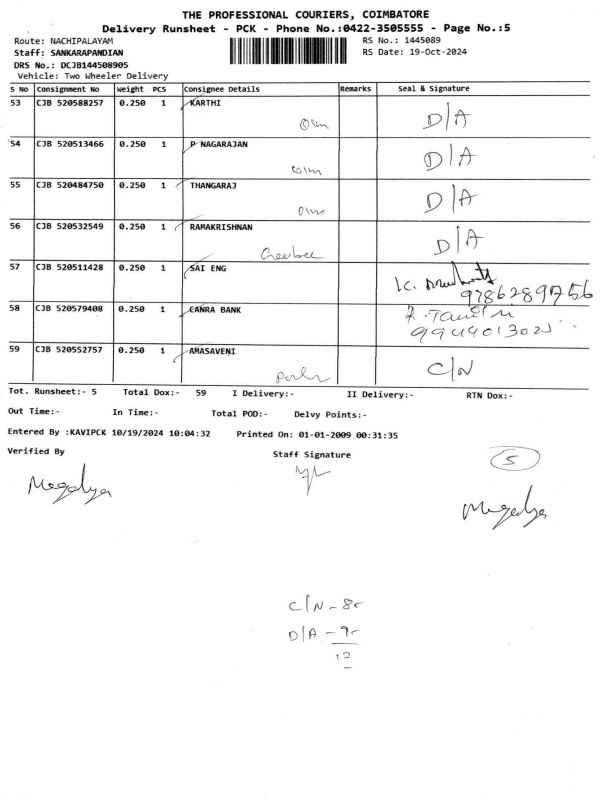 THE PROFESSIONAL COURIERS, COIMBATORE
Delivery Runsheet - PCK - Phone No.:0422-3505555 - Page No.:5
Route: NACHIPALAYAM RS No.: 1445089
Staff: SANKARAPANDIAN RS Date: 19-Oct-2024
DRS No.: DCJB144508905
Vehicle: Two Wheeler Delivery
S No Consignment No Weight PCS Consignee Details Remarks Seal & Signature
53 CJB 520588257 0.250 1 KARTHI D/A
54 CJB 520513466 0.250 1 P NAGARAJAN D/A
55 CJB 520484750 0.250 1 THANGARAJ D/A
56 CJB 520532549 0.250 1 RAMAKRISHNAN D/A
57 CJB 520511428 0.250 1 SAI ENG K.
9786289756
58 CJB 520579408 0.250 1 CANRA BANK
59 CJB 520552757 0.250 1 AMASAVENI C/N
Tot. Runsheet:- 5 Total Dox:- 59 I Delivery:- II Delivery:- RTN Dox:-
Out Time:- In Time:- Total POD:- Delvy Points:-
Entered By :KAVIPCK 10/19/2024 10:04:32 Printed On: 01-01-2009 00:31:35
Verified By Staff Signature 5
C/N - 8
D/A - 9